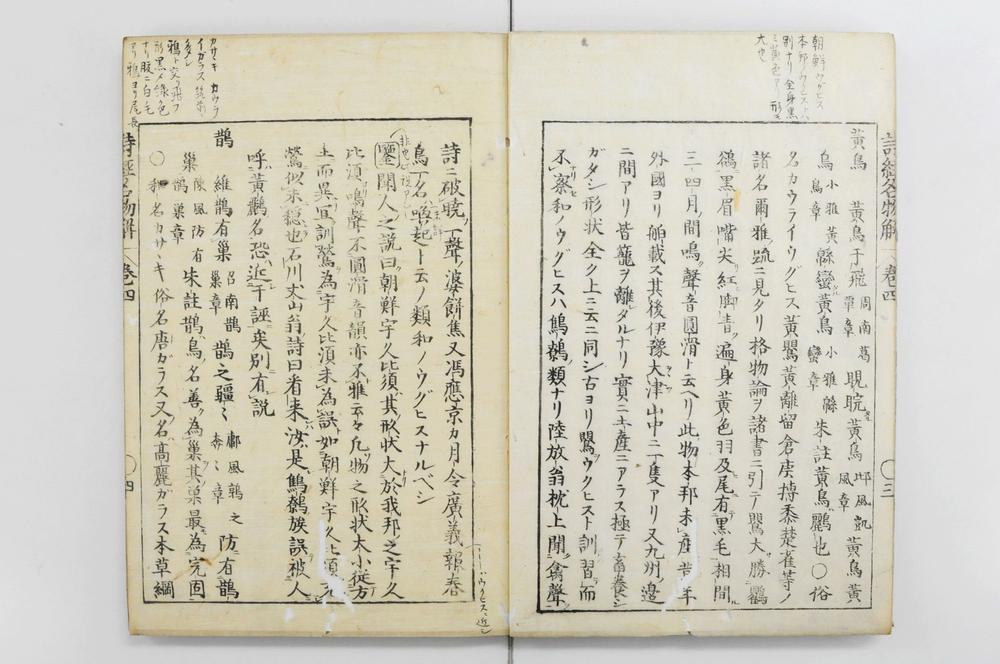 朝鮮ウグヒス
本邦ノウクヒストハ
別ナリ全身黒
ミ黄色アリ形モ
大也
詩經名物解
卷四
〇三
黄鳥 黄鳥于飛 周南葛覃章 睍睆黄鳥 邶風凱風章 黄鳥黄
鳥 小雅黄鳥章 緜蠻黄鳥 小雅緜蠻章 朱註黄鳥鸝也〇俗
名カウライウグヒス黄鸎黄離留倉庚摶黍楚雀等ノ
諸名爾雅疏ニ見タリ格物論ヲ諸書ニ引テ鸎大勝鸜
鵒黒眉嘴尖紅脚青遍身黄色羽及尾有黒毛相間
三四月間鳴聲音圓滑ト云ヘリ此物本邦未産昔年
外國ヨリ舶載ス其後伊豫大津山中ニ一隻アリ又九州邉
ニ間アリ皆籠ヲ離タルナリ實ニ土産ニアラス極テ畜養シ
ガタシ形状全ク上ニ云ニ同シ古ヨリ鸎ウクヒスト訓習而
不察和ノウグヒスハ鷦鷯類ナリ陸放翁枕上聞禽聲
詩ニ破曉一聲婆餅焦又馮應京カ月令廣義報春
鳥一名喚起ト云ノ類和ノウグヒスナルベシ
鑒聞人之説曰朝鮮宇久比須其形状大於我邦之宇久
比須鳴聲不圓滑音韻亦不雅云々凡物之形状大小従方
土而異冝訓鶯為宇久比須未為誤如朝鮮宇久比須元
鶯似未穏也石川丈山翁詩曰看来汝是鷦鷯族誤被人
呼黄鸝名恐近于誣矣別有説
鵲 維鵲有巢 召南鵲巢章 鵲之疆〻 鄘風鶉之奔〻章 防有鵲
巢 陳風防有鵲巢章 朱註鵲鳥名善為巢其巢最為完固
〇和名カサヽキ俗名唐ガラス又ノ名高麗ガラス本草綱
ウグヒスニ近シ
カサヽキ カウラ
イガラス 筑前
多シ
鴉ト交リ飛フ
形黒メ緑色
ナリ腹ニ白毛
アリ鴉ヨリ尾長
詩經名物解
卷四
〇四